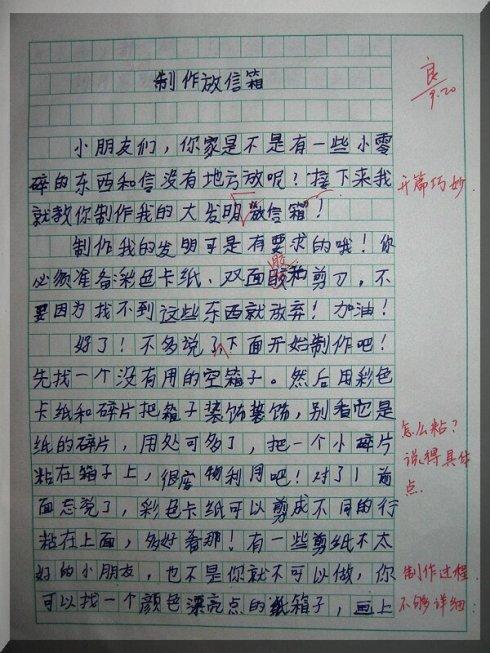 制作放信箱
良
9.20
小朋友们，你家是不是有一些小零
碎的东西和信没有地方放呢？接下来我
开篇巧妙.
就教你制作我的大发明“放信箱”！
制作我的发明可是有要求的哦！你
胶
必须准备彩色卡纸、双面胶和剪刀，不
要因为找不到这些东西就放弃！加油！
好了！不多说了下面开始制作吧！
先找一个没有用的空箱子。然后用彩色
卡纸和碎片把箱子装饰装饰，别看它是
怎么粘？
纸的碎片，用处可多了，把一个小碎片
说得具体
粘在箱子上，很废物利用吧！对了！前
点.
面忘说了，彩色卡纸可以剪成不同的行
粘在上面，多好看那！有一些剪纸不太
好的小朋友，也不是你就不可以做，你
制作过程
可以找一个颜色漂亮点的纸箱子，画上
不够详细.